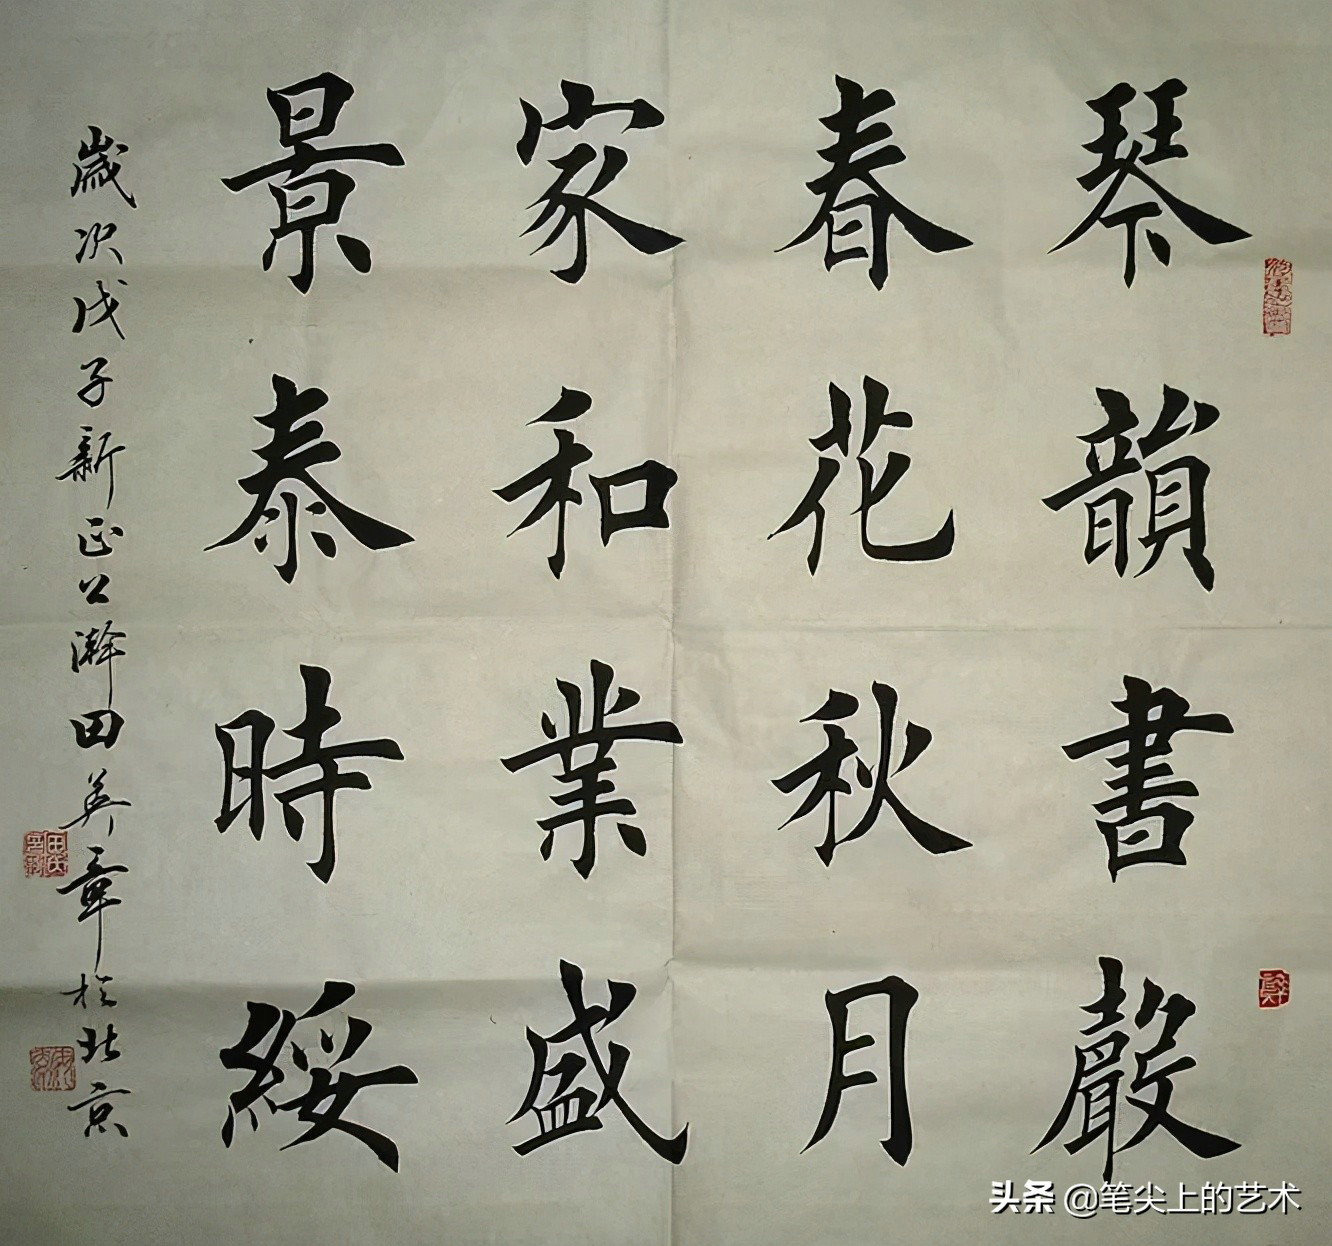 琴韻書聲
春花秋月
家和業盛
景泰時綏
歲次戊子新正公瀚田英章於北京
头条 @笔尖上的艺术